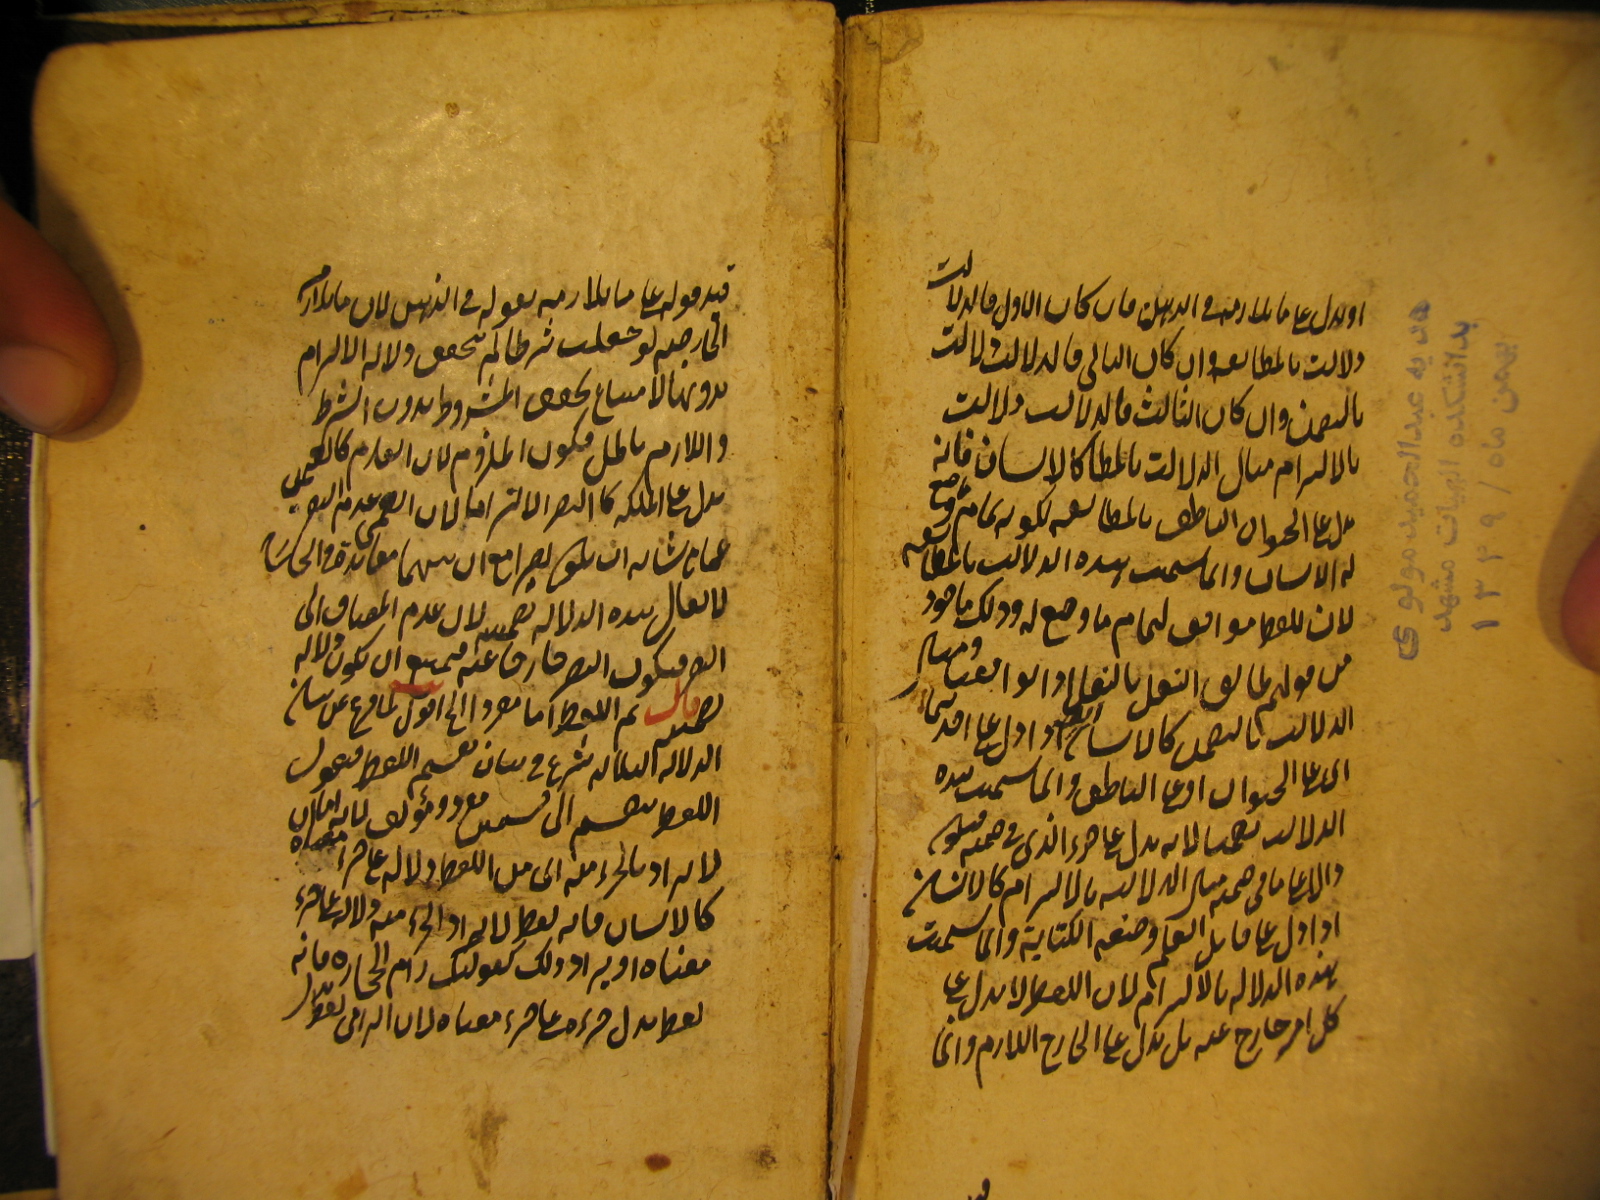 او يدل على ما يلازمه في الذهن فان كان الاول فالدلالت
دلالت بالمطابقه وان كان الثاني فالدلالت دلالت
بالتضمن وان كان الثالث فالدلالت دلالت
بالالتزام مثال الدلالت بالمطابقة كالانسان فانه
يدل على الحيوان الناطق بالمطابقه لكونه تمام ما وضع
له الانسان وانما سميت هذه الدلالت بالمطابقه
لان اللفظ موافق لتمام ما وضع له وذلك ماخوذ
من قولهم طابق النعل بالنعل اذا توافقتا ومثال
الدلالت بالتضمن كالانسان اذا دل على احدهما
اى على الحيوان او على الناطق وانما سميت هذه
الدلالت تضمنا لانه يدل على جزء الذي في ضمنه فيكون
دالا على ما في ضمنه مثال الدلالت بالالتزام كالانسان
اذا دل على قابل العلم وصنعه الكتابة وانما سميت
بهذه الدلاله بالالتزام لان اللفظ لا يدل على
كل امر خارج عنه بل يدل على الخارج اللازم وانما
هدیه عبدالحمید مولوی
بدانشکده الهیات مشهد
بهمن ماه / ١٣٤٩
قيد قوله على ما يلازمه بقوله في الذهن لان ملازم
الخارجيه لو جعلت شرطا لم يتحقق دلاله الالتزام
بدونها لامتناع تحقق المشروط بدون الشرط
واللازم باطل فيكون الملزوم لان العدم كالعمى
يدل على الملكه كالبصر التزاما لان العمى عدم البصر
عما من شانه ان يكون بصيرا مع ان بينهما معاندة في الخارج
لا يقال هذه الدلاله تضمنيه لان عدم المضاف الى
البصر فيكون البصر خارجا عنه فيمتنع ان يكون دلاله
تضمنيه قال ثم اللفظ اما مفرد الخ اقول لما فرغ عن بيان
الدلاله الثلاثه شرع في بيان تقسيم اللفظ فنقول
اللفظ ينقسم الى قسمين مفرد ومؤلف لانه اما ان
لا يراد بالجزء منه اى من اللفظ دلاله على جزء معناه
كالانسان فانه لفظ لا يراد الجزء منه دلاله على جزء
معناه او يراد ذلك كقولك رامى الحجاره فانه
لفظ يدل جزءه على جزء معناه لان الرامى لفظ يدل